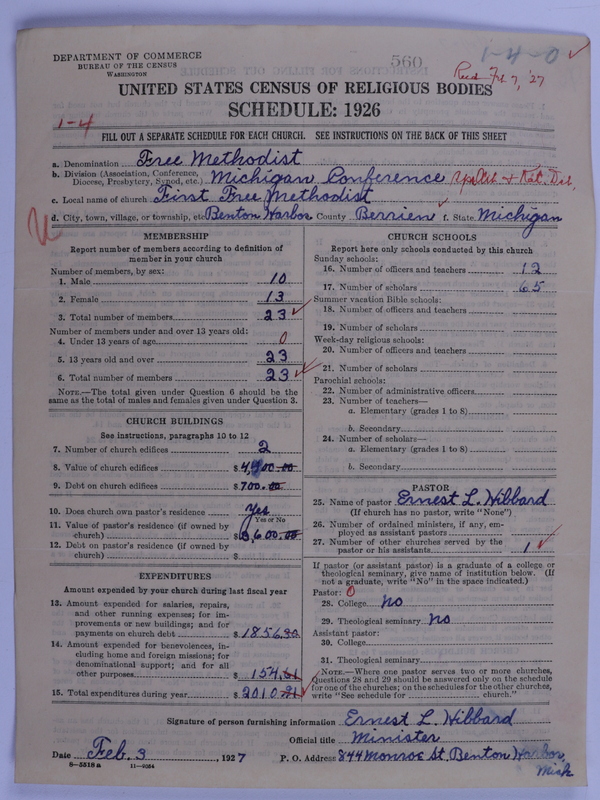 DEPARTMENT OF COMMERCE
BUREAU OF THE CENSUS
WASHINGTON
560
1-4-0
Rec'd Feb 7, '27
UNITED STATES CENSUS OF RELIGIOUS BODIES
SCHEDULE: 1926
1-4
FILL OUT A SEPARATE SCHEDULE FOR EACH CHURCH. SEE INSTRUCTIONS ON THE BACK OF THIS SHEET
a. Denomination Free Methodist
b. Division (Association, Conference, Diocese, Presbytery, Synod, etc.) Michigan Conference
c. Local name of church First Free Methodist
d. City, town, village, or township, etc. Benton Harbor County Berrien f. State Michigan
MEMBERSHIP
Report number of members according to definition of
member in your church
Number of members, by sex:
1. Male 10
2. Female 13
3. Total number of members 23
Number of members under and over 13 years old:
4. Under 13 years of age 0
5. 13 years old and over 23
6. Total number of members 23
NOTE.—The total given under Question 6 should be the
same as the total of males and females given under Question 3.
CHURCH BUILDINGS
See instructions, paragraphs 10 to 12
7. Number of church edifices 2
8. Value of church edifices $
9. Debt on church edifices $ 700.00
10. Does church own pastor's residence Yes
Yes or No
11. Value of pastor's residence (if owned by
church) $ 3,600.00
12. Debt on pastor's residence (if owned by
church) $
EXPENDITURES
Amount expended by your church during last fiscal year
13. Amount expended for salaries, repairs,
and other running expenses; for im-
provements or new buildings; and for
payments on church debt $ 1856.20
14. Amount expended for benevolences, in-
cluding home and foreign missions; for
denominational support; and for all
other purposes $ 154.01
15. Total expenditures during year $ 2010.21
CHURCH SCHOOLS
Report here only schools conducted by this church
Sunday schools:
16. Number of officers and teachers 12
17. Number of scholars 65
Summer vacation Bible schools:
18. Number of officers and teachers
19. Number of scholars
Week-day religious schools:
20. Number of officers and teachers
21. Number of scholars
Parochial schools:
22. Number of administrative officers
23. Number of teachers—
a. Elementary (grades 1 to 8)
b. Secondary
24. Number of scholars—
a. Elementary (grades 1 to 8)
b. Secondary
PASTOR
25. Name of pastor Ernest L. Hibbard
(If church has no pastor, write "None")
26. Number of ordained ministers, if any, em-
ployed as assistant pastors
27. Number of other churches served by the
pastor or his assistants 1
If pastor (or assistant pastor) is a graduate of a college or
theological seminary, give name of institution below. (If
not a graduate, write "No" in the space indicated.)
Pastor: 0
28. College no
29. Theological seminary no
Assistant pastor:
30. College
31. Theological seminary
NOTE.—Where one pastor serves two or more churches,
Questions 28 and 29 should be answered only on the schedule
for one of the churches; on the schedules for the other churches,
write "See schedule for church."
Signature of person furnishing information Ernest L. Hibbard
Official title Minister
Date Feb. 3, 1927 P. O. Address 844 Monroe St. Benton Harbor,
Mich
8-5518a 11-9064